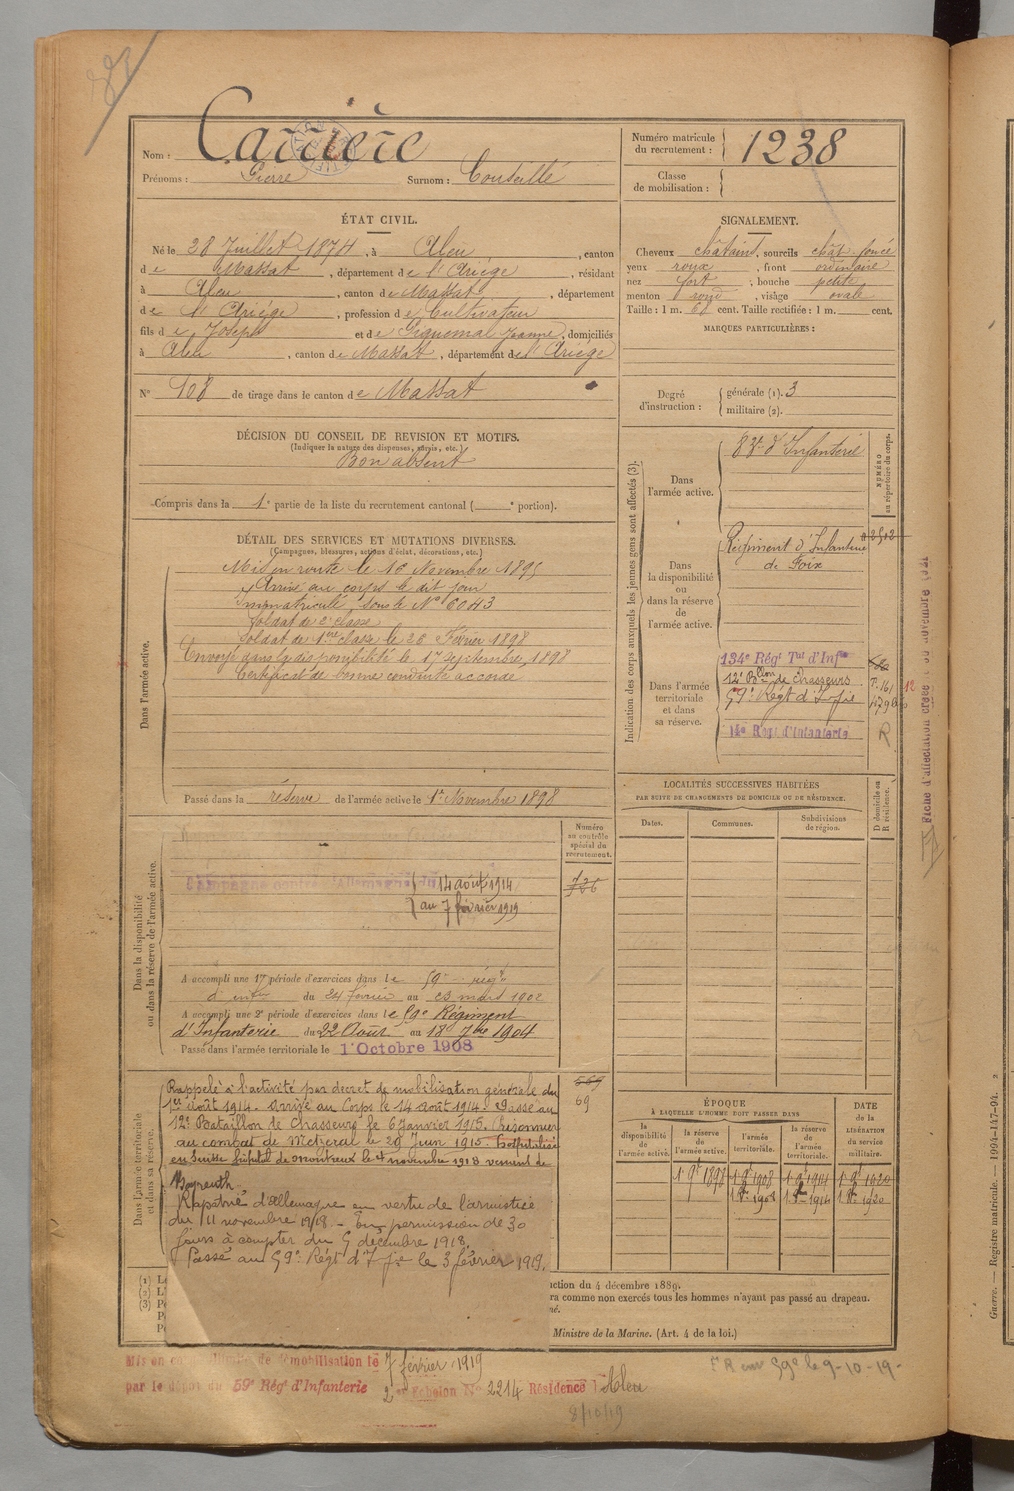 Nom : Carrière
Prénoms : Pierre Surnom : Couseillé
Numéro matricule du recrutement : 1238
Classe de mobilisation :
ÉTAT CIVIL.
Né le 28 Juillet 1874, à Aleu, canton
de Massat, département de l'Ariège, résidant
à Aleu, canton de Massat, département
de l'Ariége, profession de Cultivateur
fils de Joseph et de Jeanne, domiciliés
à Aleu, canton de Massat, département de l'Ariège
N° 108 de tirage dans le canton de Massat
SIGNALEMENT.
Cheveux châtains, sourcils chât foncé
yeux roux, front ordinaire
nez fort, bouche petite
menton rond, visage ovale
Taille : 1 m. 68 cent. Taille rectifiée : 1 m. cent.
MARQUES PARTICULIÈRES :
Degré d'instruction : générale (1). 3
militaire (2).
DÉCISION DU CONSEIL DE REVISION ET MOTIFS.
(Indiquer la nature des dispenses, sursis, etc.)
Bon absent
Compris dans la 1e partie de la liste du recrutement cantonal ( e portion).
DÉTAIL DES SERVICES ET MUTATIONS DIVERSES.
(Campagnes, blessures, actions d'éclat, décorations, etc.)
Dans l'armée active.
Mis en route le 16 Novembre 1895
Arrivé au corps le dit jour
immatriculé sous le N° 6043
Soldat de 2e classe
Soldat de 1ere classe le 26 Février 1898
Envoyé dans la disponibilité le 17 septembre 1898
Certificat de bonne conduite accordé
Passé dans la réserve de l'armée active le 1er Novembre 1898
Indication des corps auxquels les jeunes gens sont affectés (3).
NUMÉRO au répertoire du corps.
Dans l'armée active.
83e d'Infanterie
Dans la disponibilité ou dans la réserve de l'armée active.
Régiment d'Infanterie
de Foix
Dans l'armée territoriale et dans sa réserve.
134e Régt Tal d'Infie
12e Bllon de Chasseurs
59e Régt d'Infie
14e Régt d'Infanterie
R
Fiche d'affectation créée
LOCALITÉS SUCCESSIVES HABITÉES
PAR SUITE DE CHANGEMENTS DE DOMICILE OU DE RÉSIDENCE.
Dates. Communes. Subdivisions de région. D domicile ou R résidence.
Dans la disponibilité ou dans la réserve de l'armée active.
Numéro au contrôle spécial du recrutement.
726
Campagne contre l'Allemagne du 14 août 1914
au 7 février 1919
A accompli une 1re période d'exercices dans le 59e régt
d'infie du 24 février au 23 mars 1902
A accompli une 2e période d'exercices dans le 59e Régiment
d'Infanterie du 22 Août au 18 7bre 1904
Passé dans l'armée territoriale le 1 Octobre 1908
Dans l'armée territoriale et dans sa réserve.
569
69
Rappelé à l'activité par décret de mobilisation générale du
1er août 1914. Arrivé au Corps le 14 août 1914. Passé au
12e Bataillon de Chasseurs le 6 Janvier 1915. Prisonnier
au combat de Metzeral le 20 Juin 1915. Hospitalisé
en Suisse hôpital de Montreux le 4 novembre 1918 venant de
Bayreuth.
Rapatrié d'Allemagne en vertu de l'armistice
du 11 novembre 1918 - En permission de 30
jours à compter du 5 décembre 1918.
Passé au 59e Régt d'Ifie le 3 février 1919.
ÉPOQUE
À LAQUELLE L'HOMME DOIT PASSER DANS
la disponibilité de l'armée active. la réserve de l'armée active. l'armée territoriale. la réserve de l'armée territoriale.
DATE de la LIBÉRATION du service militaire.
1 9bre 1898 1 9bre 1908 1 9bre 1914 1 9bre 1920
1 8bre 1908 1 8bre 1914 1 8bre 1920
(1)
(2)
(3)
ction du 4 décembre 1889.
ra comme non exercés tous les hommes n'ayant pas passé au drapeau.
Ministre de la Marine. (Art. 4 de la loi.)
Guerre. — Registre matricule. — 1994-147-94.
Mis en congé illimité de démobilisation le 7 février 1919
par le dépôt du 59e Régt d'Infanterie 2e Echelon N° 2214 Résidence : Aleu
8/10/19
59e le 9-10-19-